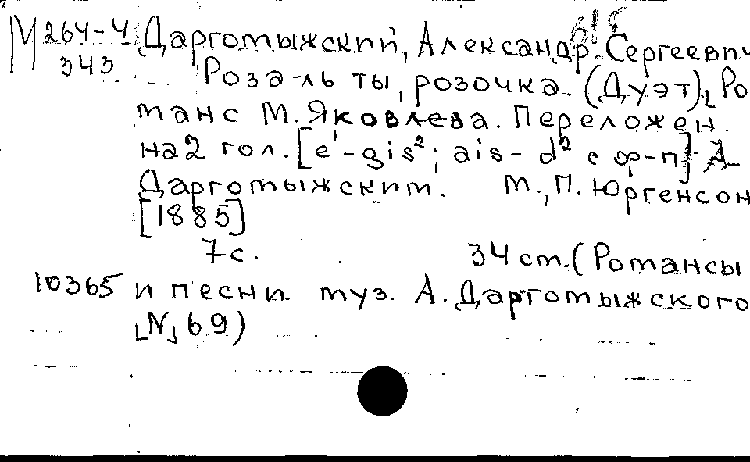 М 264-4 Даргомыжский, Александр Сергеевич
343 Роза-ль ты, розочка. (Дуэт). Ро-
манс М. Яковлева. Переложен
на 2 гол. [e'-gis²; ais-d² с ф-п] А.
Даргомыжским. М., П. Юргенсон
[1885]
7с. 34 cm. (Романсы
10365 и песни муз. А. Даргомыжского
[N] 69)